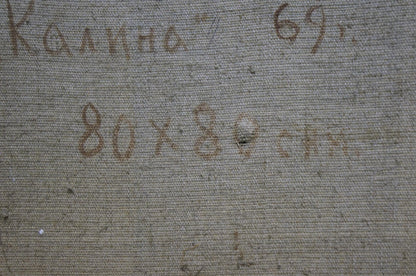 Калина" 69 г.
80 × 80 см.